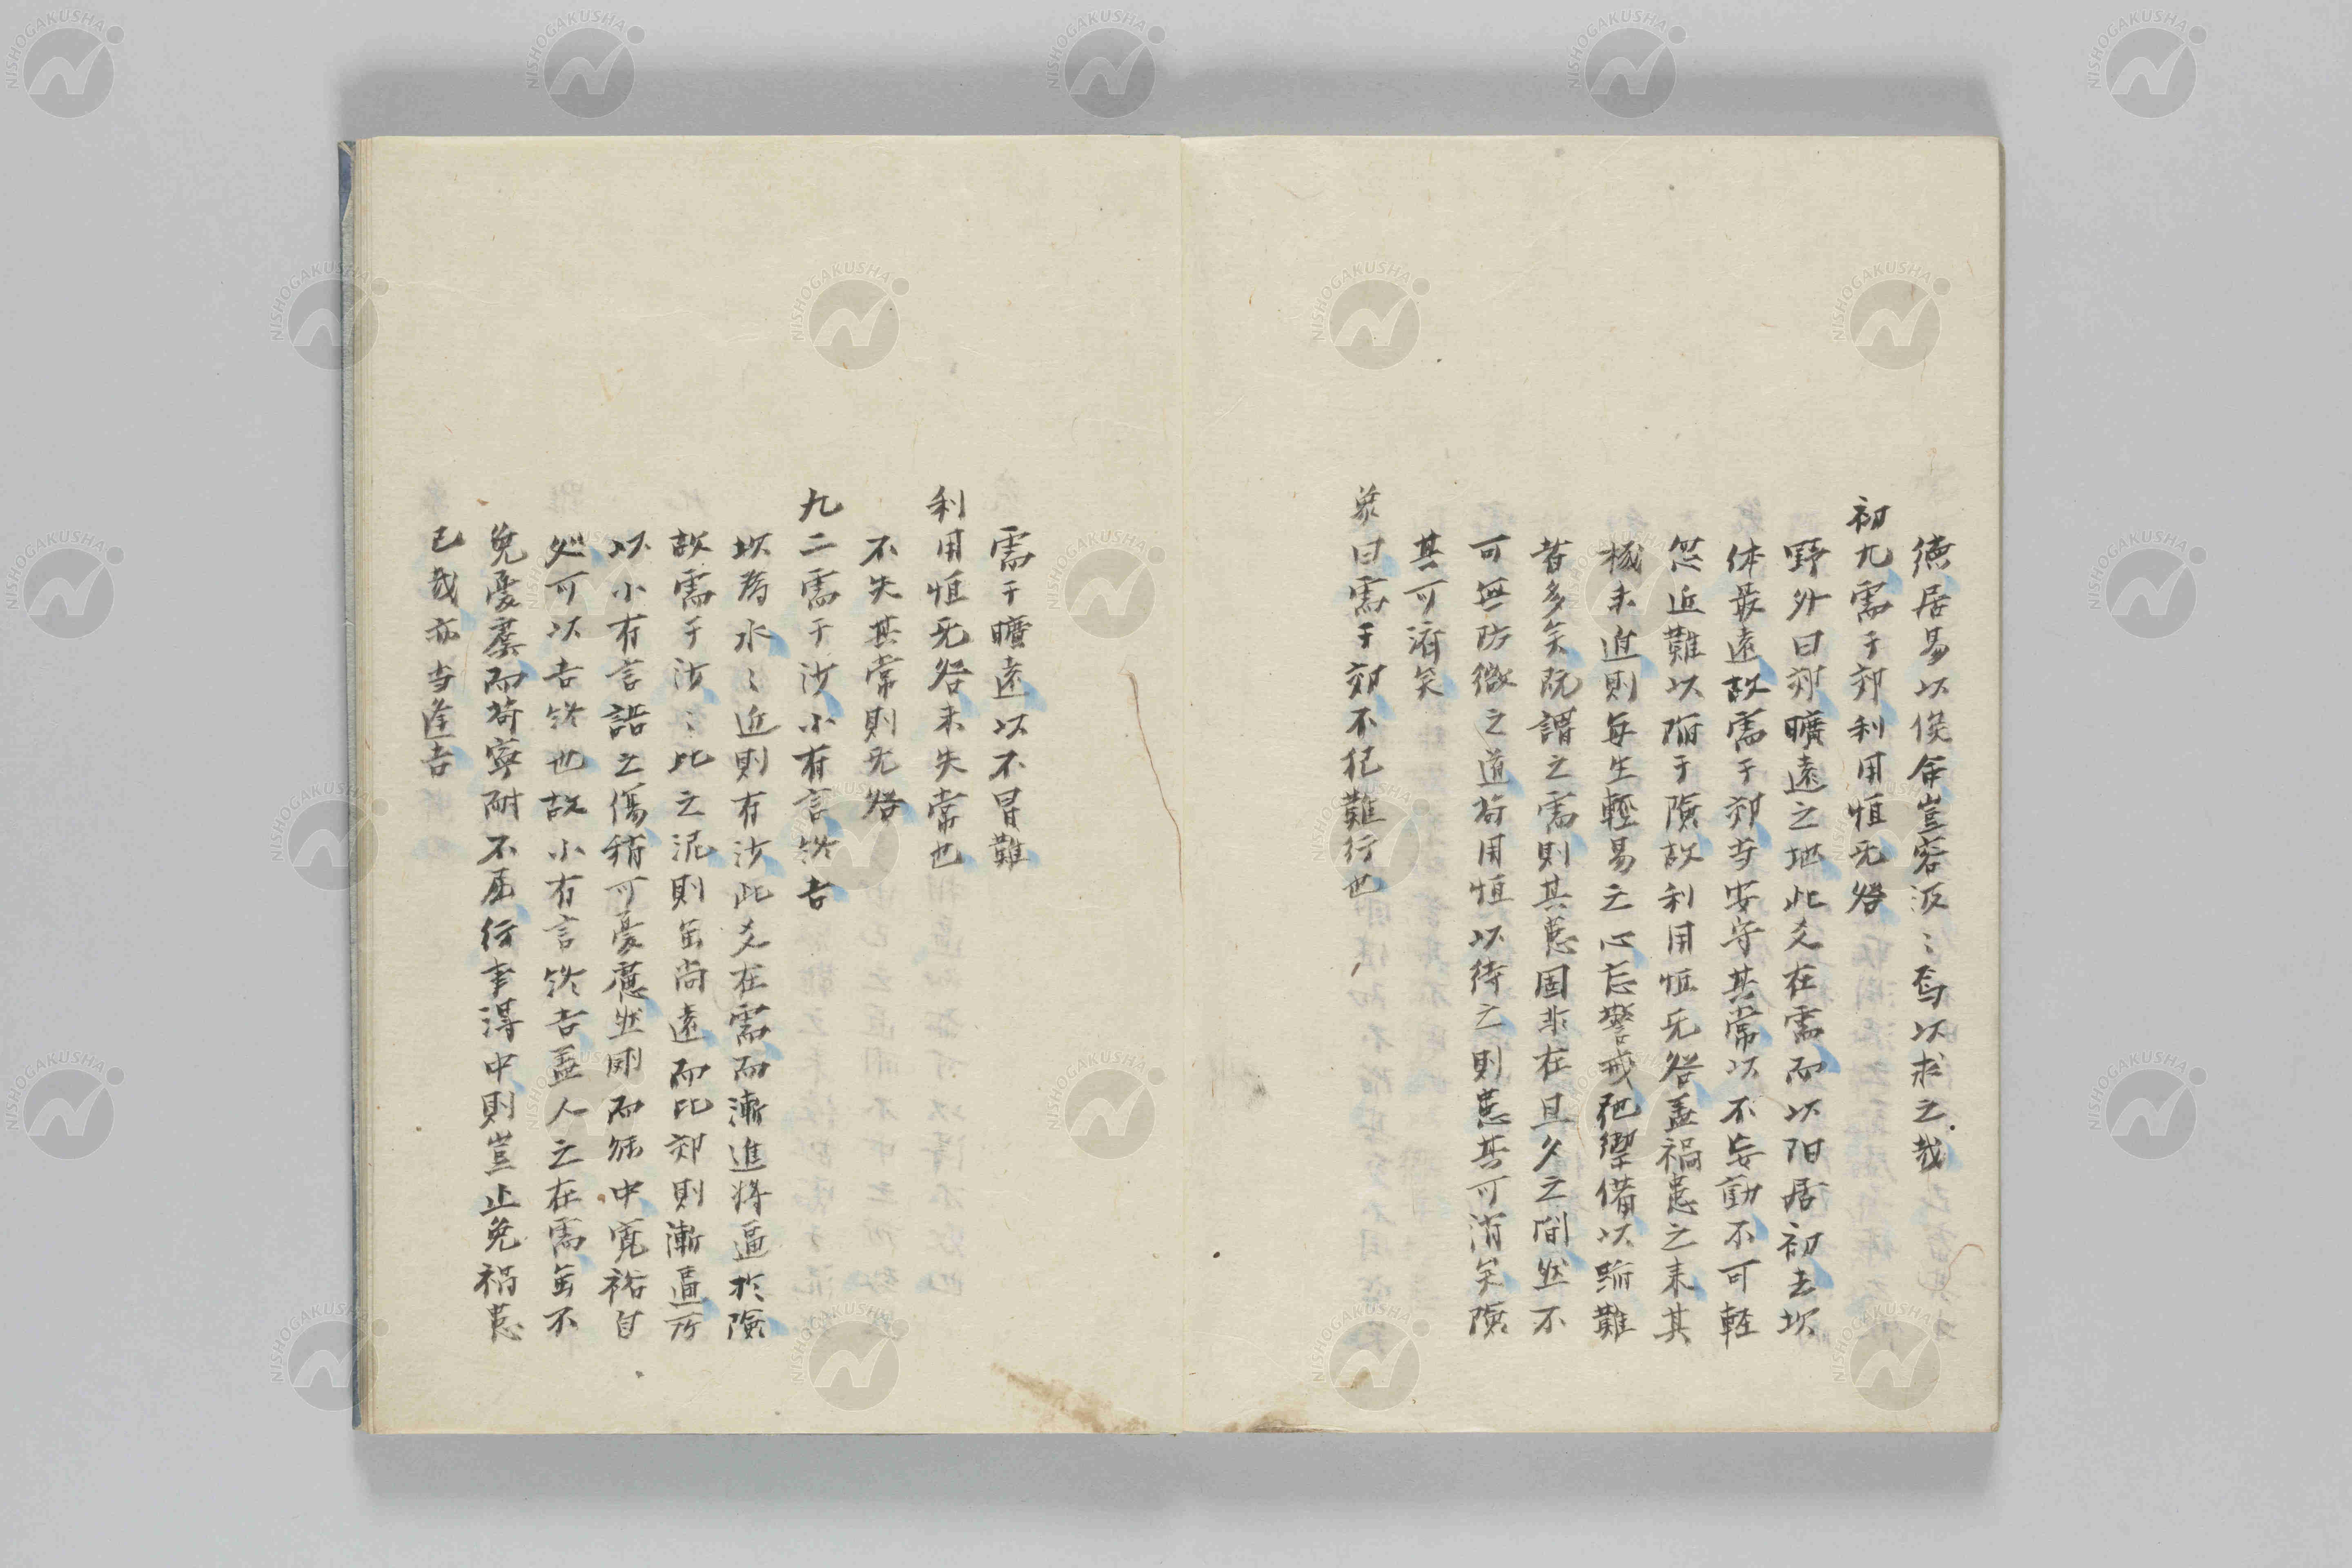 德居易以俟命豈容汲〻焉以求之哉
初九需于郊利用恒无咎
野外曰郊曠遠之地此爻在需而以陽居初去坎
体最遠故需于郊寺安守其常以不妄動不可輕
忽近難以陷于險故利用恒无咎盖禍患之未其
機未迫則每生輕易之心忘警戒弛禦備以蹈難
者多矣既謂之需則其患固非在旦夕之間然不
可無防微之道苟用恒以待之則患其可消矣險
其可濟矣
象曰需于郊不犯難行也
需于曠遠以不冒難
利用恒无咎未失常也
不失其常則无咎
九二需于沙小有言終吉
坎為水〻近則有沙此爻在需而漸進將逼於險
故需于沙〻比之泥則虽尚遠而比郊則漸逼所
以小有言語之傷稍可憂慮然剛而得中寬裕自
処可以吉終也故小有言終吉盖人之在需虽不
免憂虞而苟寧耐不屈行事得中則豈止免禍患
已哉亦当逢吉
NISHOGAKUSHA